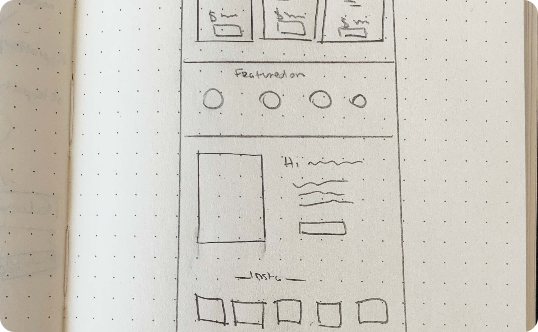 $ $ $
Featured on
Hi
Insta